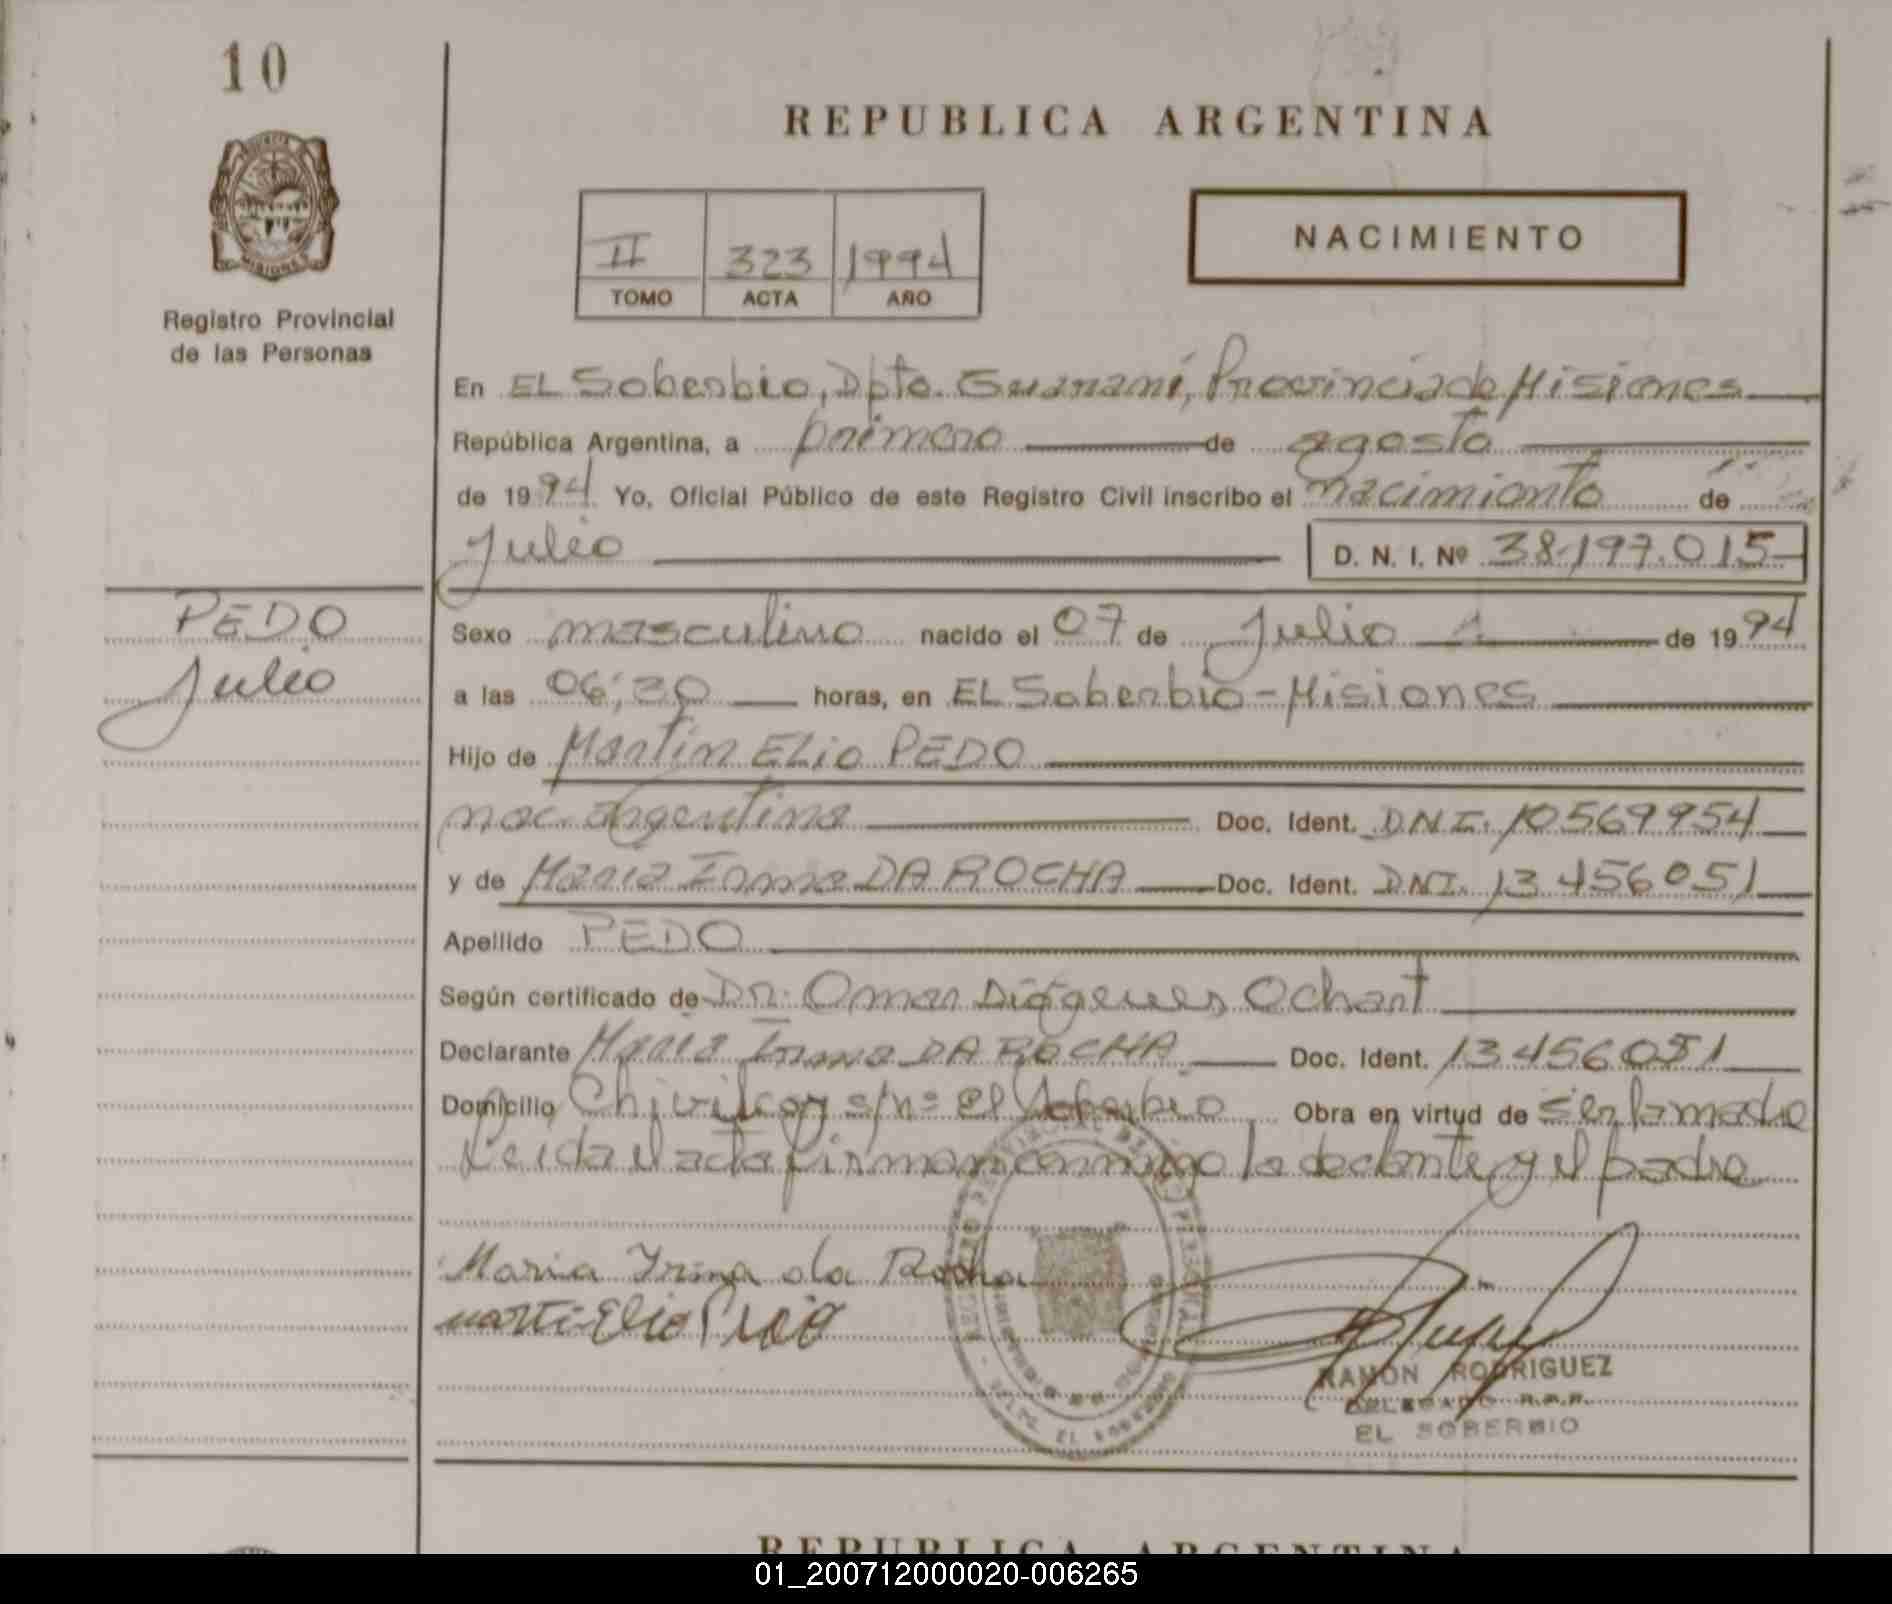 10
REPUBLICA ARGENTINA
NACIMIENTO
II 323 1994
TOMO ACTA AÑO
MISIONES
Registro Provincial
de las Personas
En EL Soberbio, Dpto. Guaraní, Provincia de Misiones
República Argentina, a primero de agosto
de 1994 Yo, Oficial Público de este Registro Civil inscribo el nacimiento de
Julio D. N. I. Nº 38.197.015
PEDO
Julio
Sexo masculino nacido el 07 de Julio de 1994
a las 06:30 horas, en EL Soberbio - Misiones
Hijo de Martín Elio PEDO
nac. argentina Doc. Ident. DNI. 10569954
y de María Irma DA ROCHA Doc. Ident. DNI. 13456051
Apellido PEDO
Según certificado de Dr. Omar Diógenes Ochant
Declarante María Irma DA ROCHA Doc. Ident. 13456051
Domicilio Chivilcoy s/nº el Soberbio Obra en virtud de ser la madre
Leida el acta firman conmigo la declante y el padre
Maria Irma da Rocha
marti Elio Pedo
RAMON RODRIGUEZ
DELEGADO R.P.P.
EL SOBERBIO
REPUBLICA ARGENTINA
01_200712000020-006265